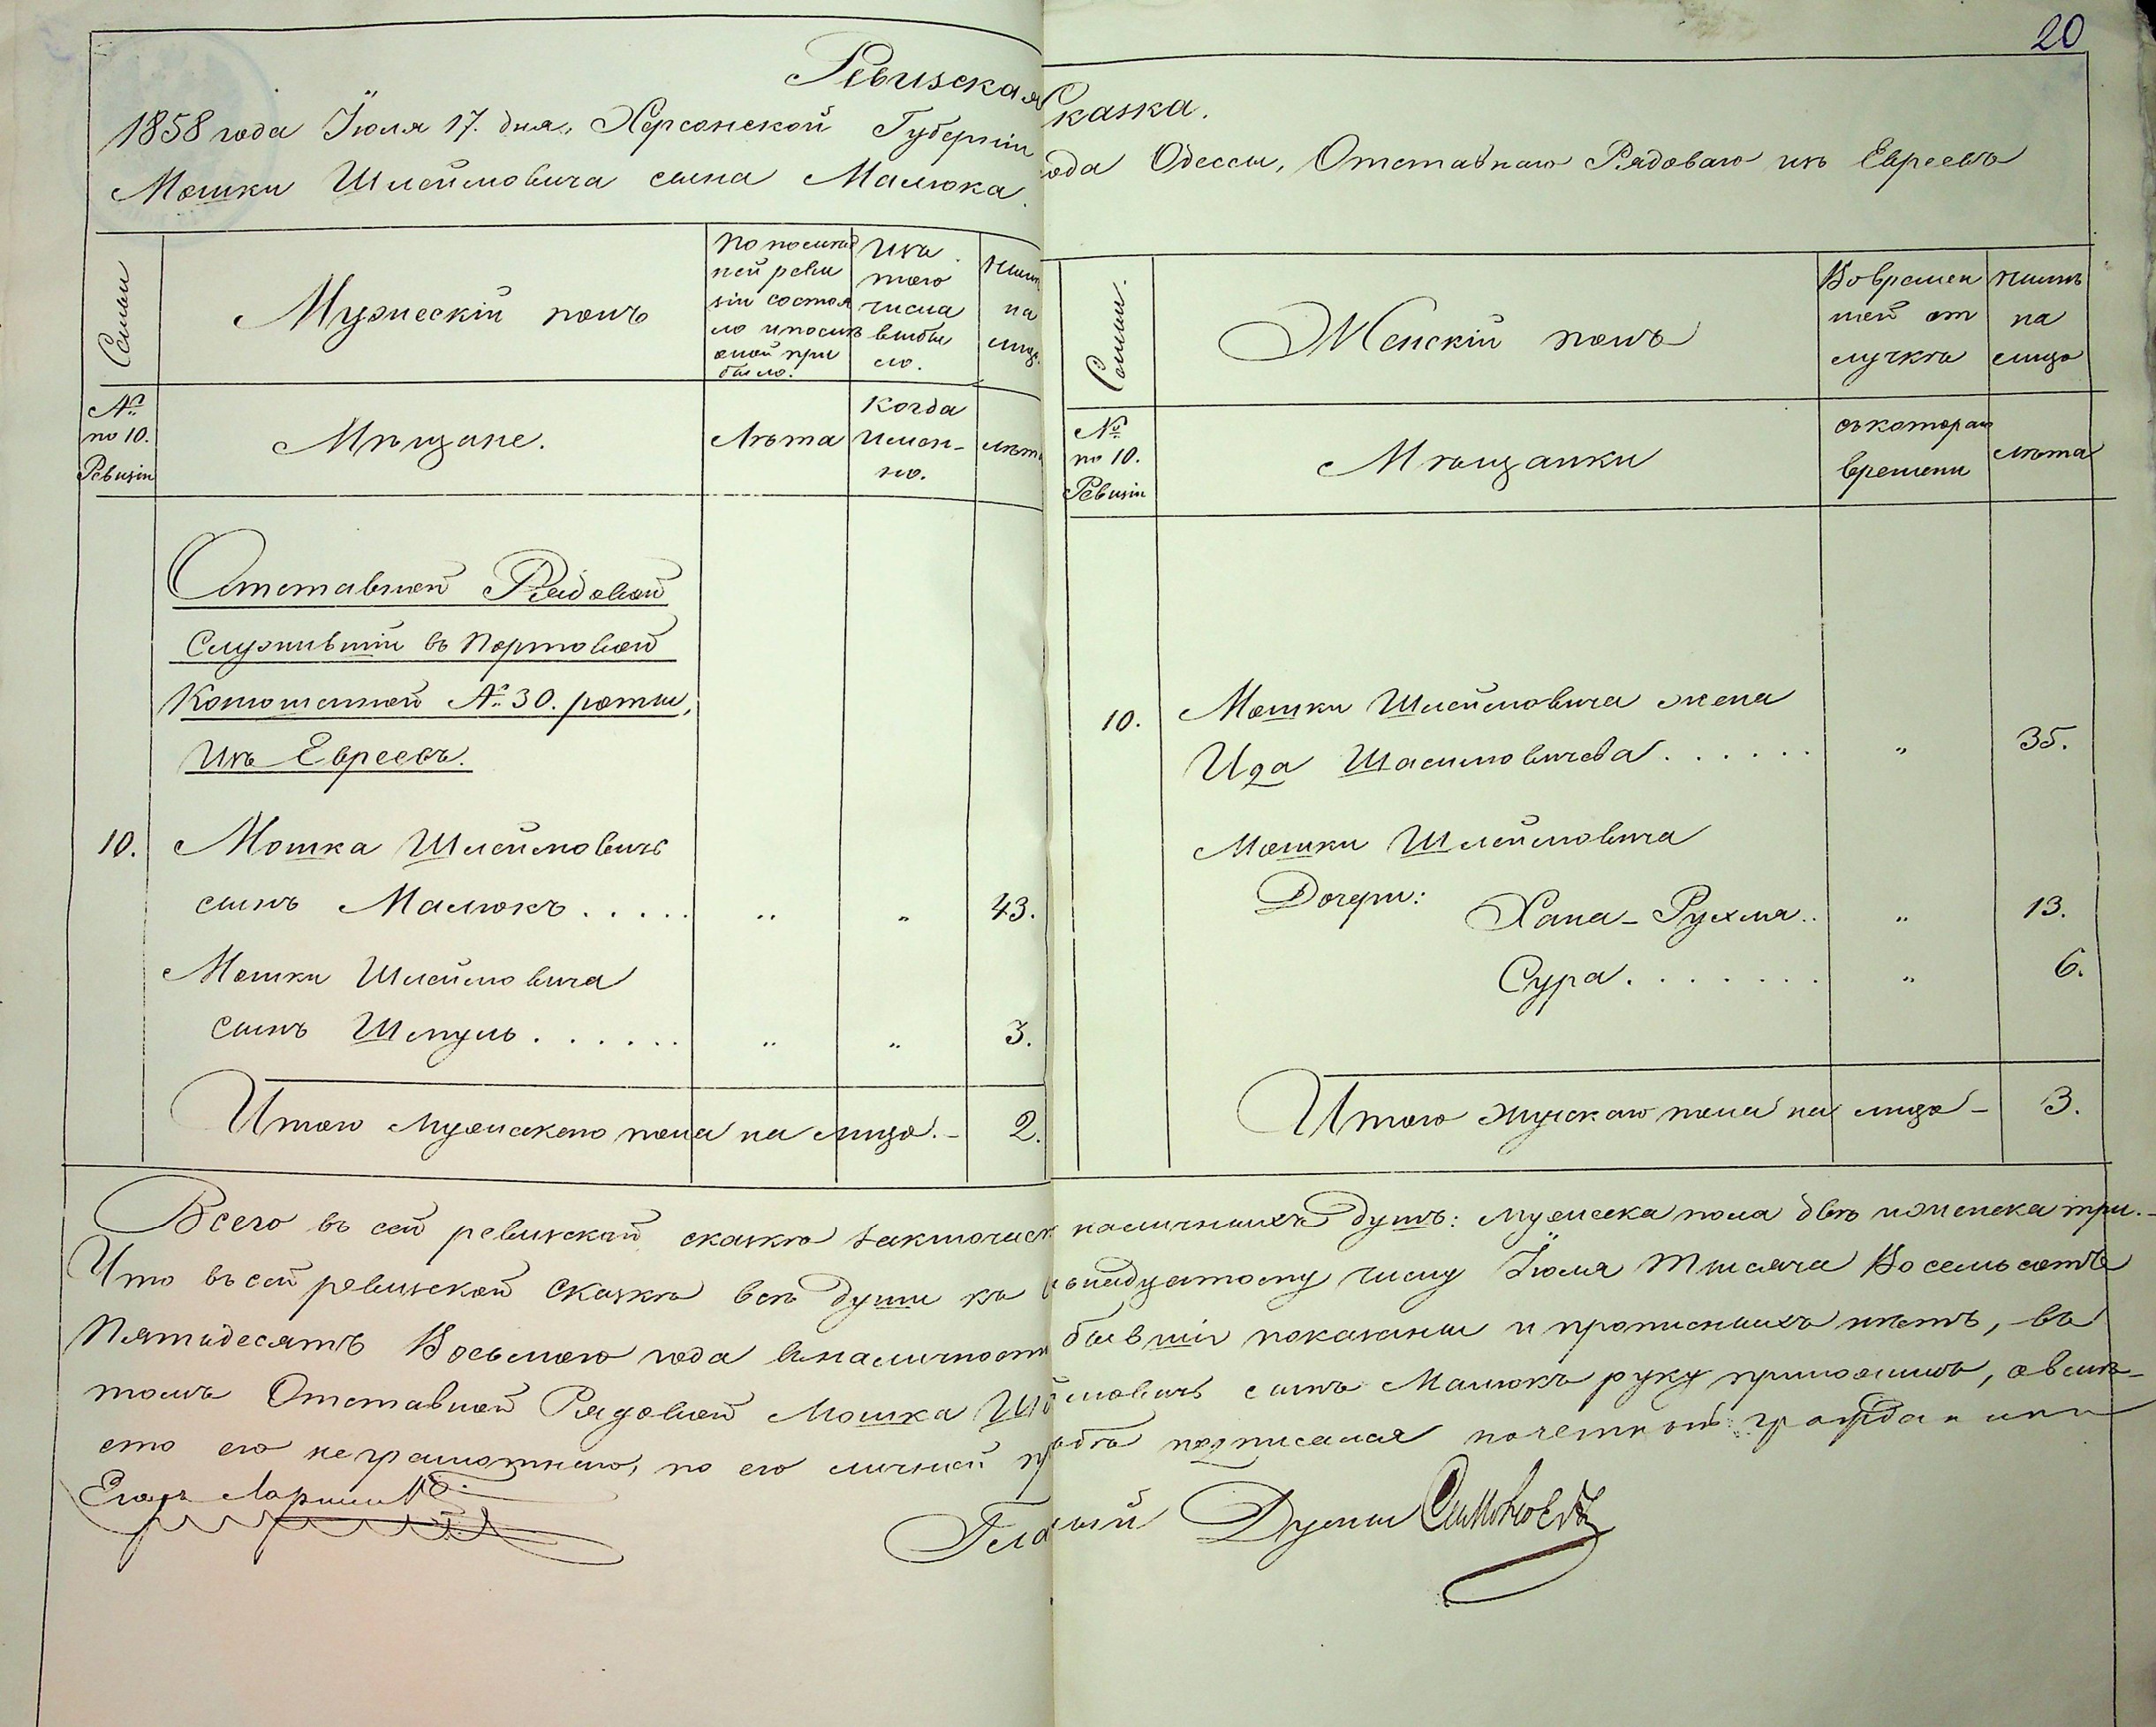 20
Ревизская Сказка.
1858 года Іюля 17. дня, Херсонской Губерніи
ода Одессы, Отставнаго Рядоваго изъ Евреевъ
Мошки Шлеймовича сына Малюка.
Семьи
Мужескій полъ
По послѣд
ней реви
зіи состоя
ло и послѣ
оной при
было.
Изъ
того
числа
выбы
ло.
Нынѣ
на
лицо
№
по 10.
Ревизіи
Мѣщане.
Лѣта
Когда
имен-
но.
лѣта
Отставной Рядовой
Служившій въ Портовой
Конюшенной № 30. роты,
Изъ Евреевъ.
10.
Мошка Шлеймовичъ
сынъ Малюкъ . . . . . „ „ 43.
Мошки Шлеймовича
сынъ Шмуль . . . . . . „ „ 3.
Итого Мужескаго пола на лицо. - 2.
Семьи.
Женскій полъ
Во времен
ной от
лучкѣ
Нынѣ
на
лицо
№
по 10.
Ревизіи
Мѣщанки
съ котораго
времени
лѣта
10.
Мошки Шлеймовича жена
Ида . . . . . . „ 35.
Мошки Шлеймовича
Дочери: Хана-Рухля . . „ 13.
Сура . . . . . . . „ 6.
Итого женскаго пола на лицо - 3.
Всего въ сей ревизской сказкѣ заключает наличныхъ душъ: мужеска пола двѣ и женска три. -
Что въ сей ревизской Сказкѣ всѣ души къ надцатому числу Іюля Тысяча Восемьсотъ
Пятидесятъ Восьмаго года въ наличности бывшія показаны и прописныхъ нѣтъ, въ
томъ Отставной Рядовой Мошка Шлеймовичъ сынъ Малюкъ руку приложилъ, а вмѣ-
сто его неграмотнаго, по его личной прозьбѣ подписался почетный гражданинъ
Егоръ
Глаcный Думы Симоновъ